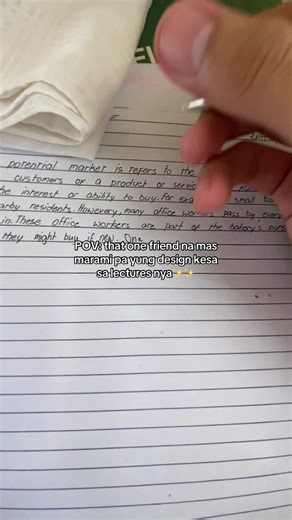 potential market is refers to the
customers of a product or
the interest or ability to buy. For small
arby residents. However, many office workers pass by every
in. These office workers are part of the bakery's
they might buy if new. One
POV: that one friend na mas
marami pa yung design kesa
sa lectures nya✨✨